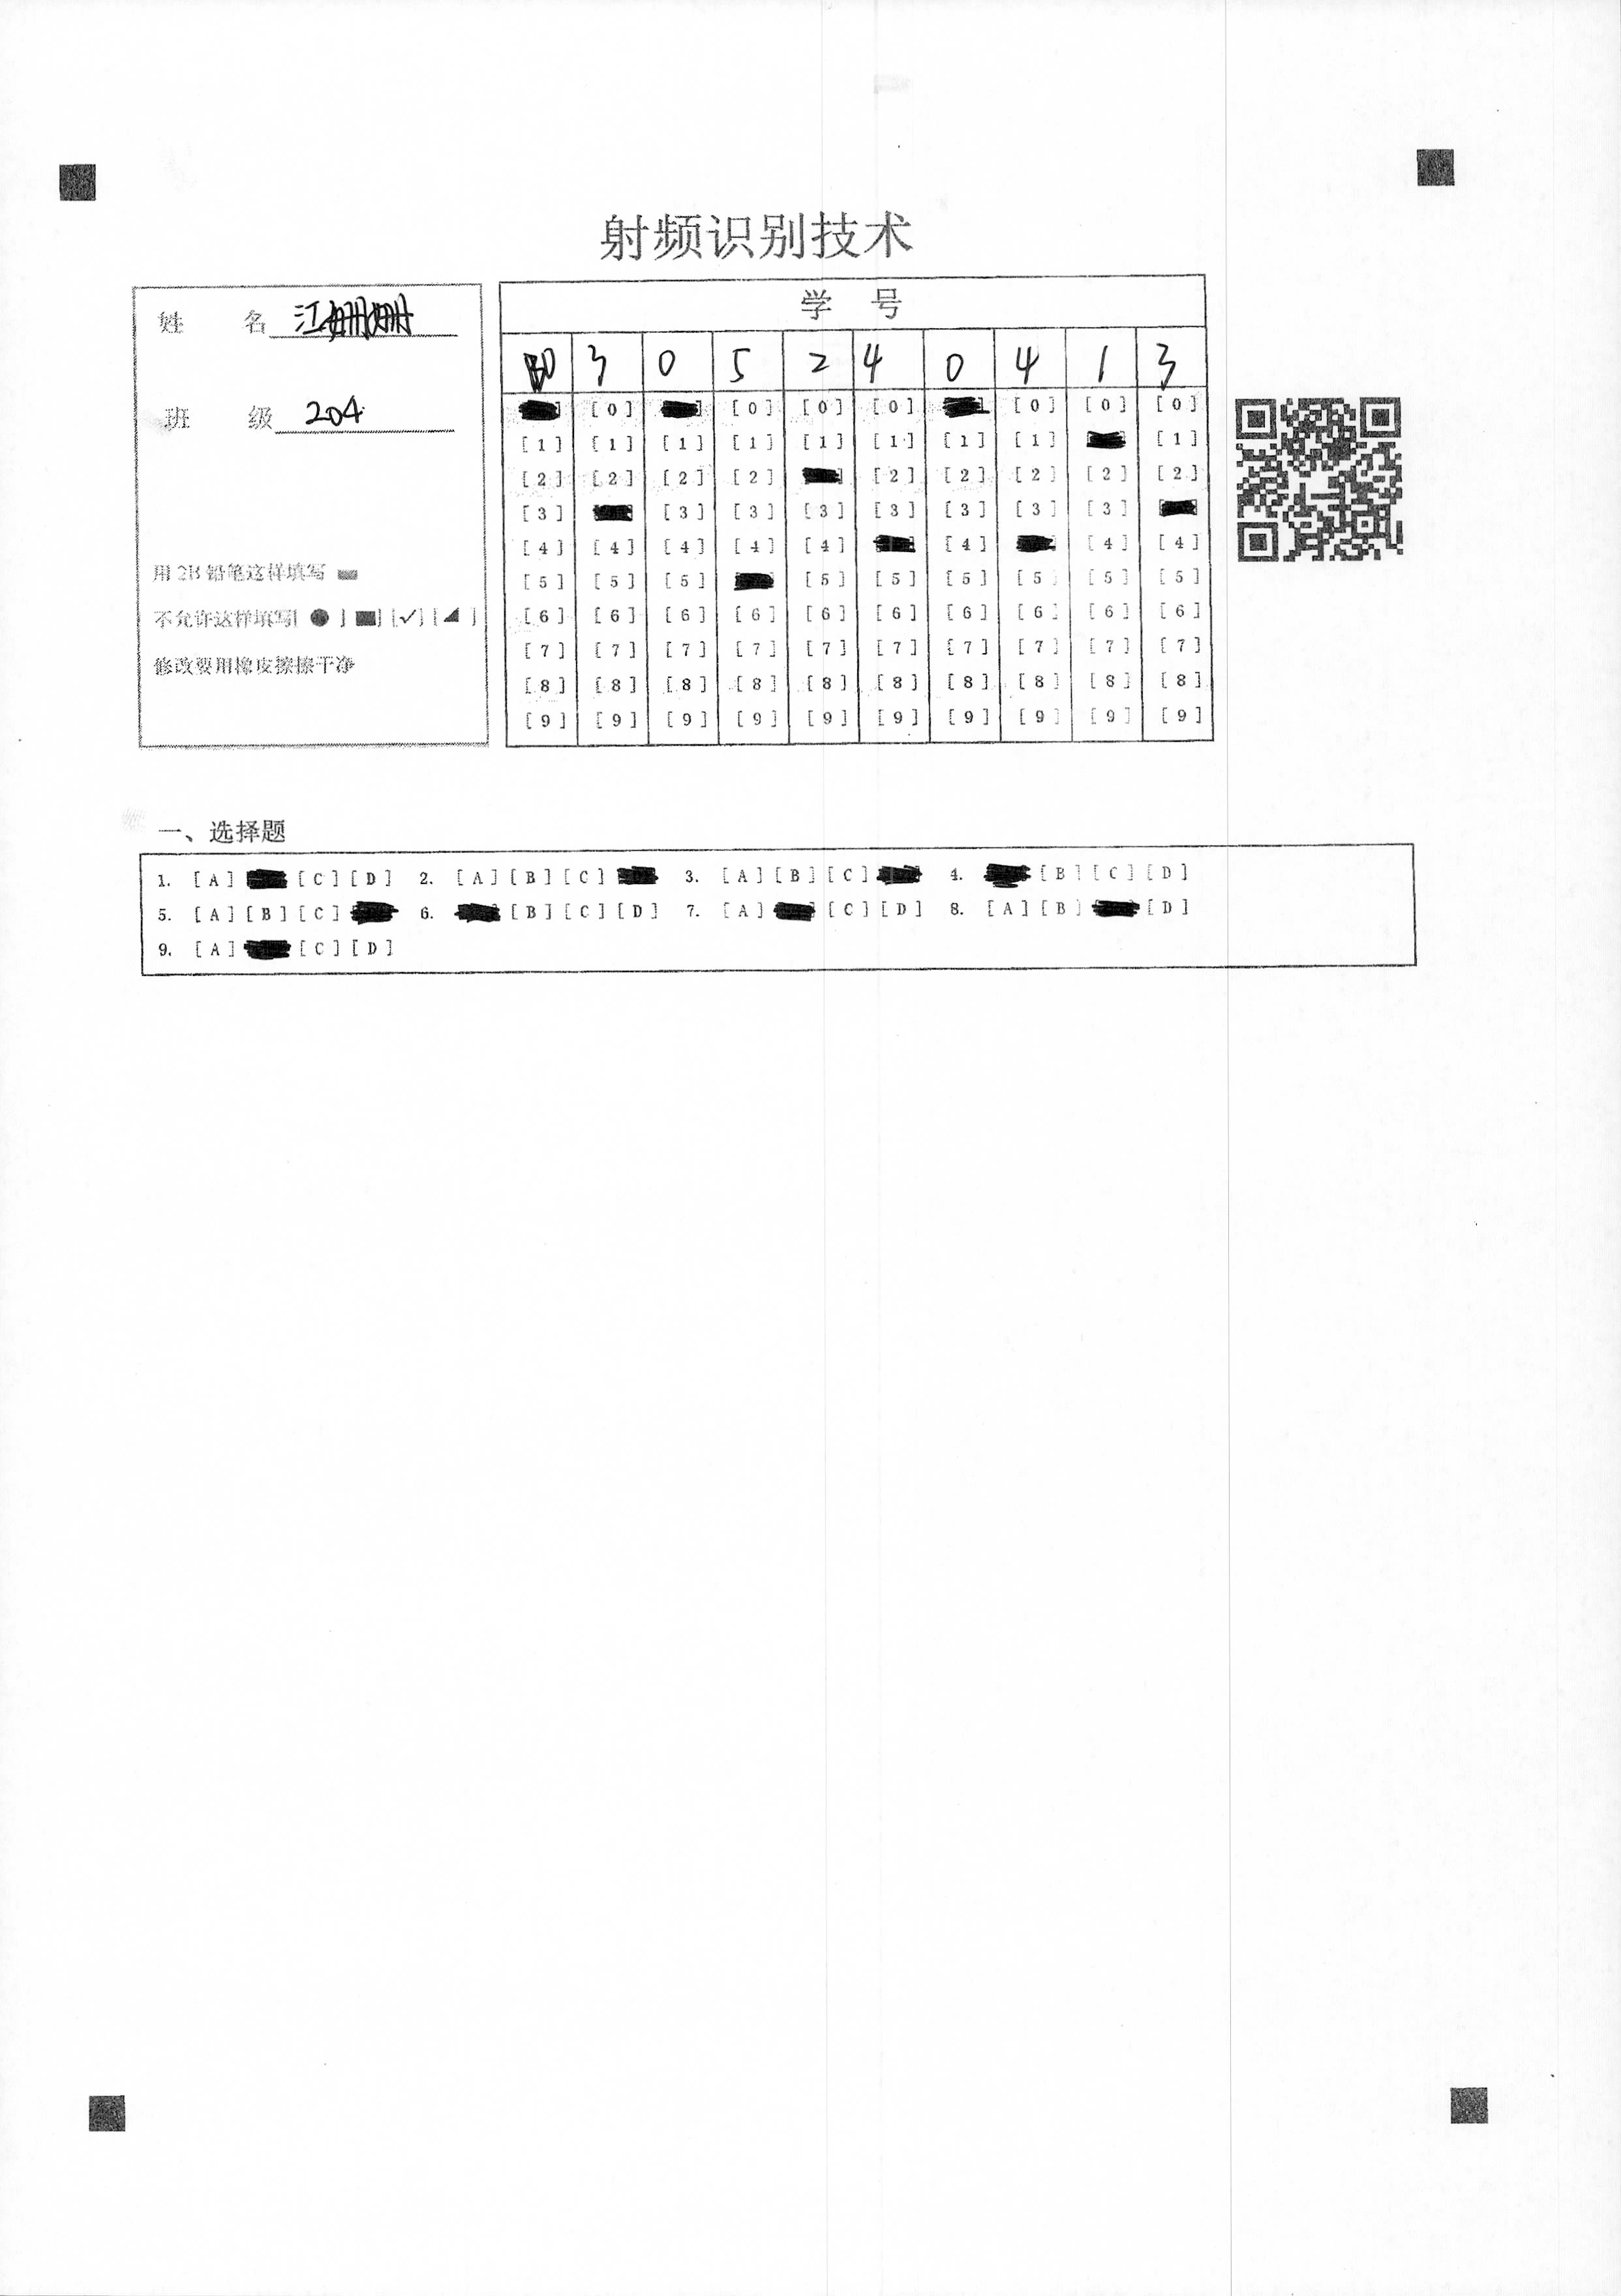 射频识别技术
姓 名 江姗姗
班 级 204
用 2B 铅笔这样填写
不允许这样填写[ ● ] [■] [✓] [◢ ]
修改要用橡皮擦擦干净
学 号
0 3 0 5 2 4 0 4 1 3
[0] [0] [0] [0] [0] [0] [0]
[1] [1] [1] [1] [1] [1] [1] [1] [1]
[2] [2] [2] [2] [2] [2] [2] [2] [2]
[3] [3] [3] [3] [3] [3] [3] [3]
[4] [4] [4] [4] [4] [4] [4] [4]
[5] [5] [5] [5] [5] [5] [5] [5] [5]
[6] [6] [6] [6] [6] [6] [6] [6] [6] [6]
[7] [7] [7] [7] [7] [7] [7] [7] [7] [7]
[8] [8] [8] [8] [8] [8] [8] [8] [8] [8]
[9] [9] [9] [9] [9] [9] [9] [9] [9] [9]
一、选择题
1. [A] [C] [D] 2. [A] [B] [C] 3. [A] [B] [C] 4. [B] [C] [D]
5. [A] [B] [C] 6. [B] [C] [D] 7. [A] [C] [D] 8. [A] [B] [D]
9. [A] [C] [D]